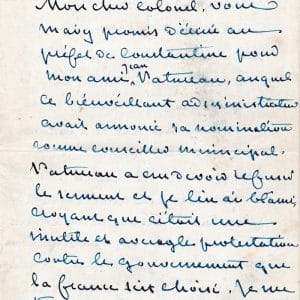 Mon cher colonel, vous
m'avez promis d'écrire au
préfet de Constantine pour
mon ami Jean Vatureau, auquel
ce bienveillant administrateur
avait annoncé sa nomination
comme conseiller municipal.
Vatureau a cru devoir refuser
le serment et je l'en ai blâmé,
croyant que c'était une
inutile et aveugle protestation
contre le gouvernement que
la france s'est choisi. Je me